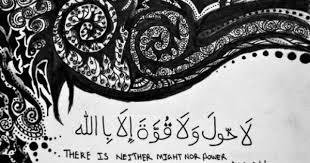 لَا حَوْلَ وَلَا قُوَّةَ إِلَا بِاللّٰه
THERE IS NEITHER MIGHT NOR POWER